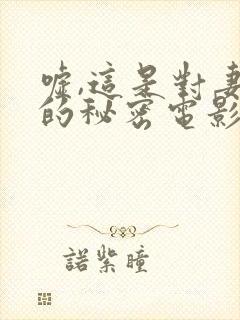 噓,這是對妻
的秘密電影
諾紫瞳